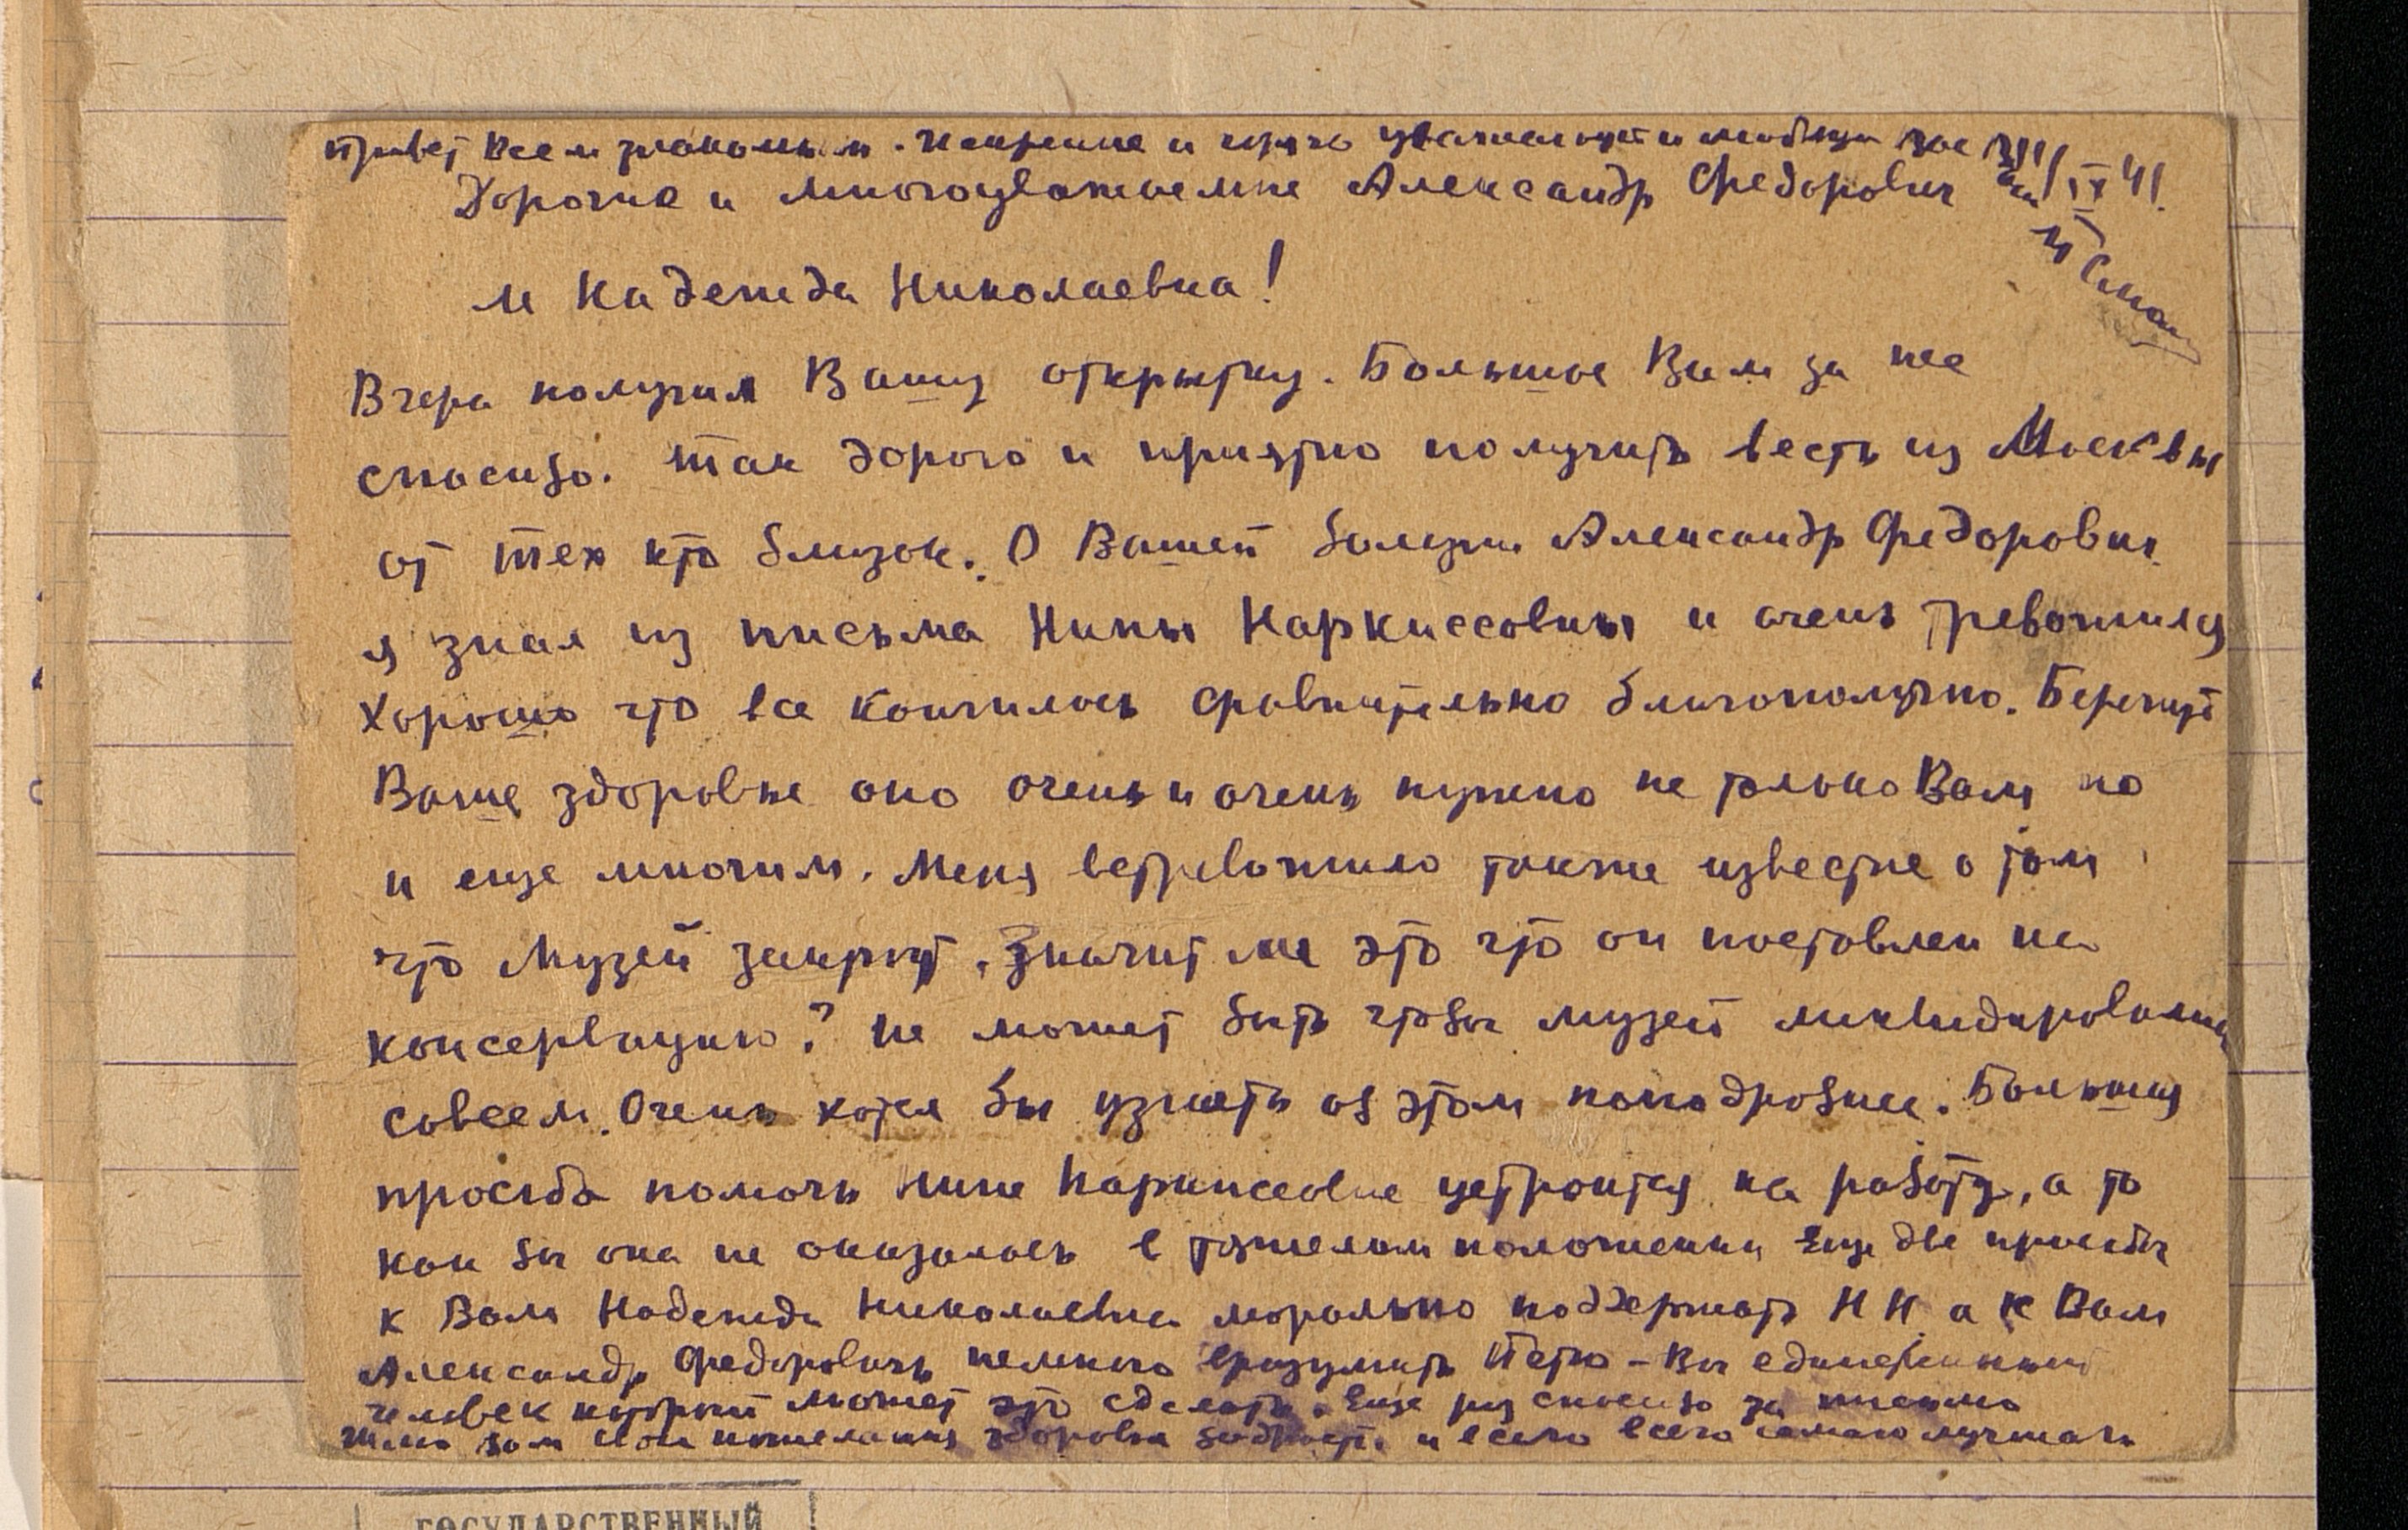 Привет всем знакомым. Искренне и горячо уважающий и любящий Вас
IX 41.
Дорогие и многоуважаемые Александр Федорович
и Надежда Николаевна!
Вчера получил Вашу открытку. Большое Вам за нее
спасибо. Так дорого и приятно получить весть из Москвы
от тех кто близок. О Вашей болезни Александр Федорович
я знал из письма Нины Наркиссовны и очень тревожился
Хорошо что все кончилось сравнительно благополучно. Берегите
Ваше здоровье оно очень и очень нужно не только Вам но
и еще многим. Меня встревожило также известие о том
что Музей закрыт. Значит ли это что он поставлен на
консервацию? Не может быть чтобы музей ликвидировали
совсем. Очень хотел бы узнать об этом поподробнее. Большая
просьба помочь Нине Наркиссовне устроится на работу, а то
как бы она не оказалась в тяжелом положении Еще две просьбы
к Вам Надежда Николаевна морально поддержать НН а к Вам
Александр Федорович немного вразумить Петю - Вы единственный
человек который может это сделать. Еще раз спасибо за письмо
Шлю Вам мои пожелания здоровья бодрости и всего всего самого лучшего
ГОСУДАРСТВЕННЫЙ